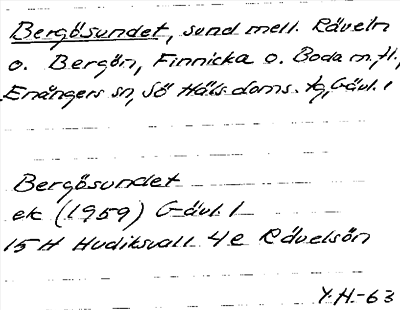 Bergösundet, sund mell. Räveln
o. Bergön, Finnicka o. Boda m.fl.,
Enångers sn, Sö Häls. doms. tg, Gävl. l
Bergösundet
ek (1959) Gävl. l
15 H Hudiksvall 4e Rävelsön
Y.H.-63